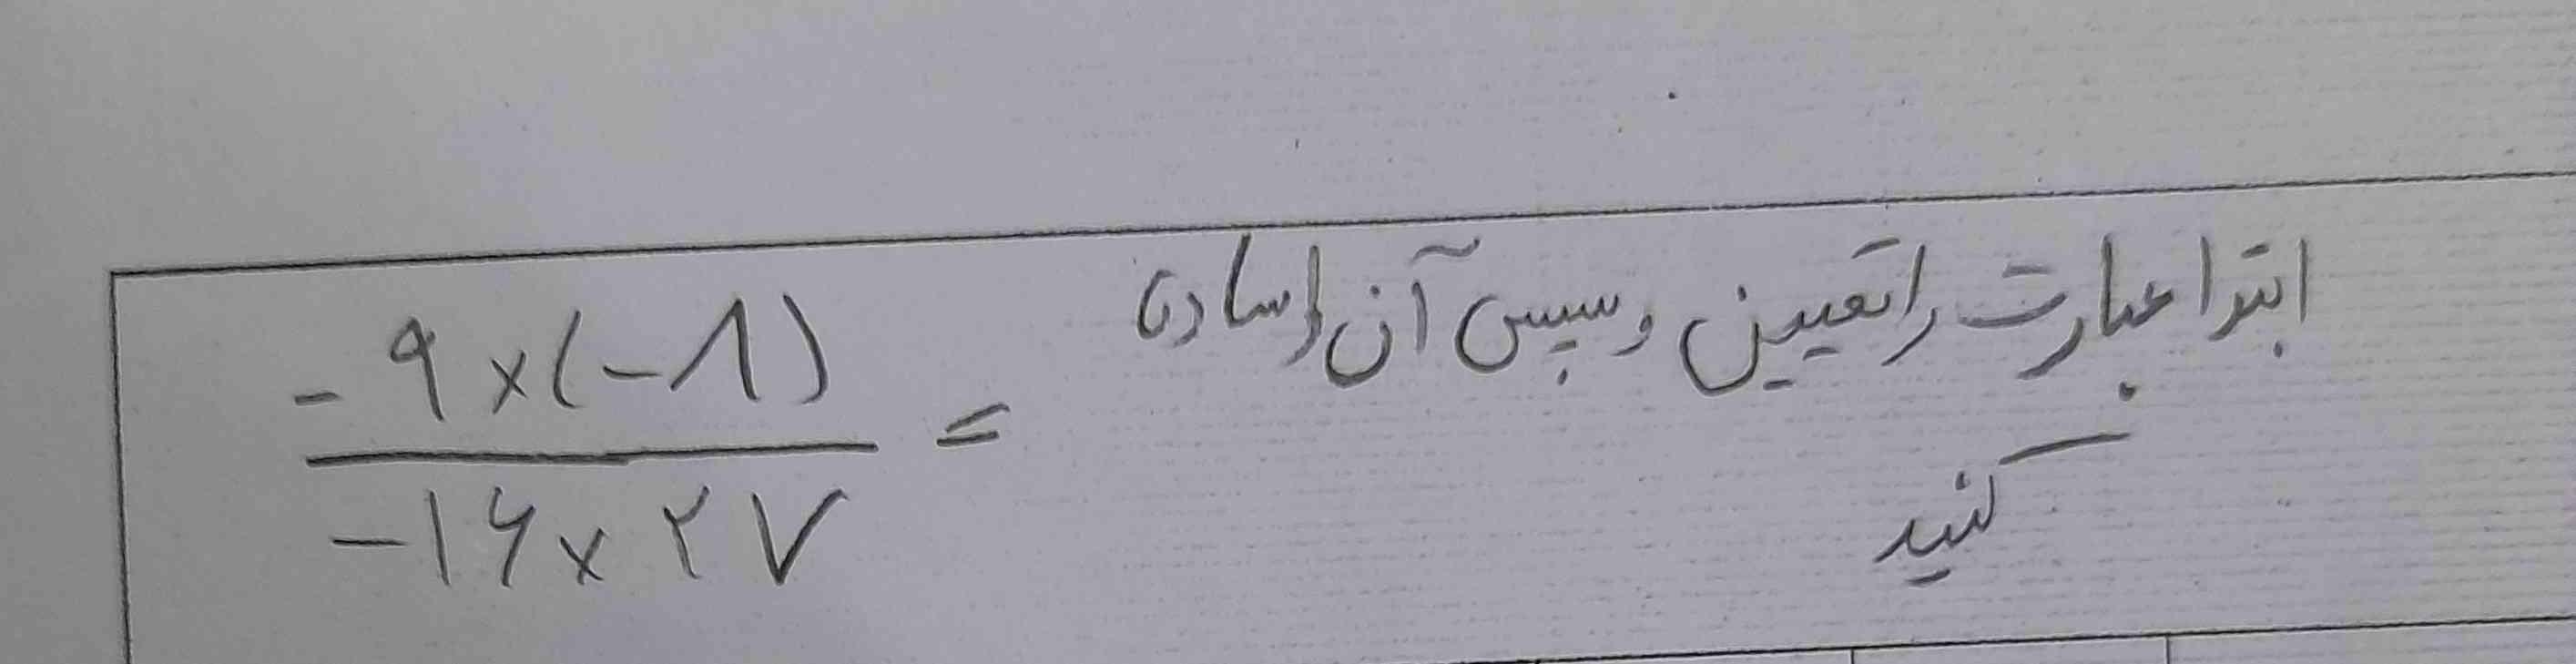 ابتدا عبارت را تعیین و سپس آن را ساده
کنید
-۹×(-۸)
=
-۱۶×۲۷